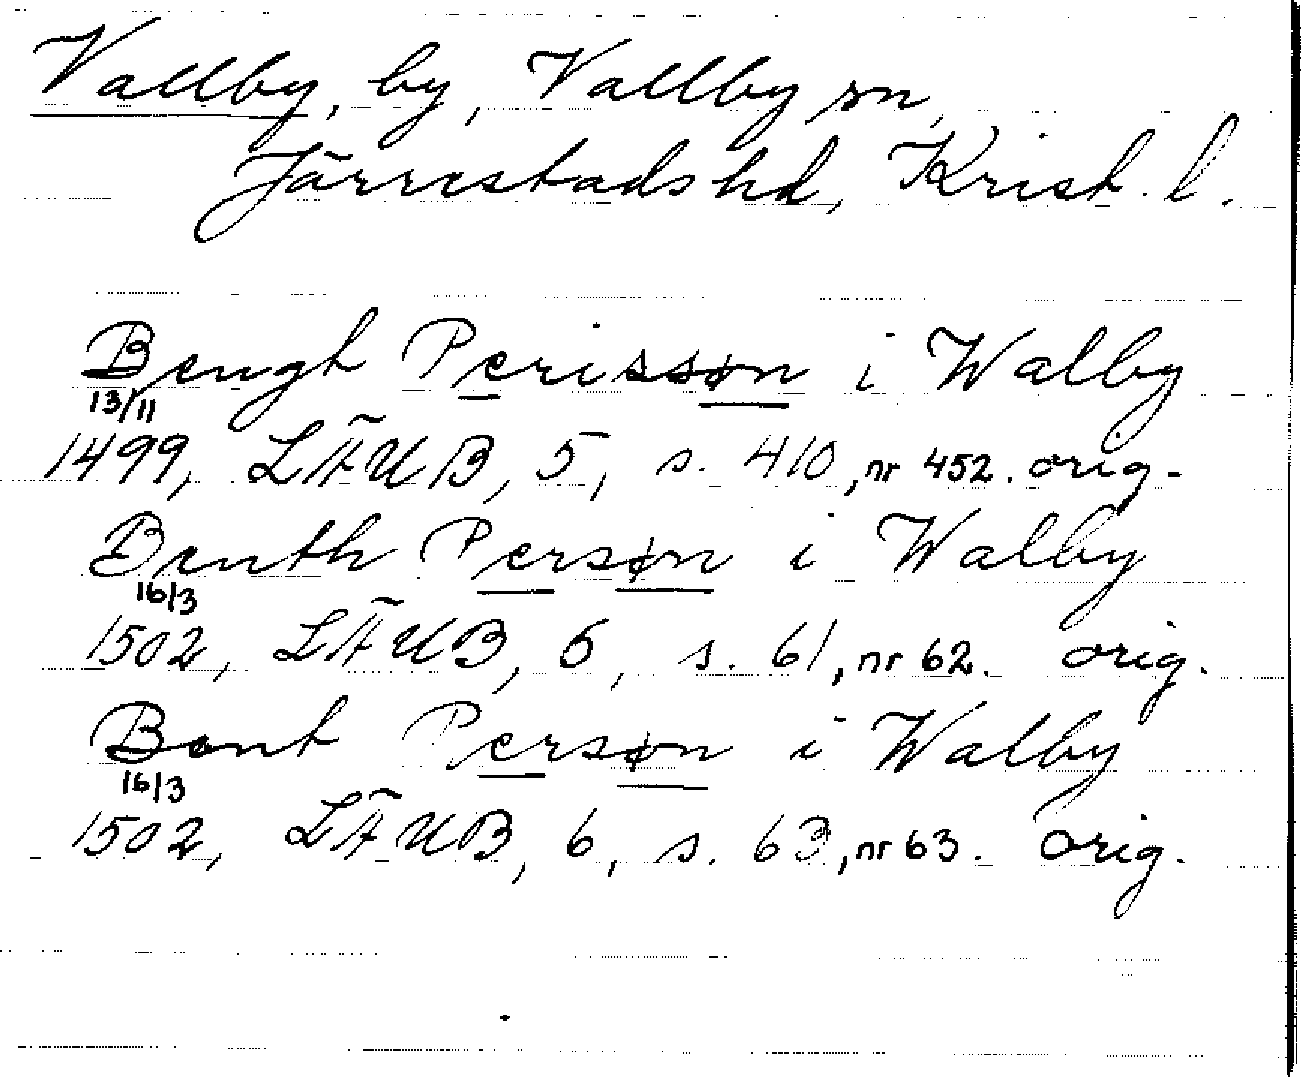 Vallby, by, Vallby sn,
Järrestads hd, Krist. l.
Bengh Perissøn i Walby
13/11
1499, LÄUB, 5, s. 410, nr 452. orig.
Benth Persøn i Walby
16/3
1502, LÄUB, 6, s. 61, nr 62. orig.
Bent Persøn i Walby
16/3
1502, LÄUB, 6, s. 63, nr 63. orig.